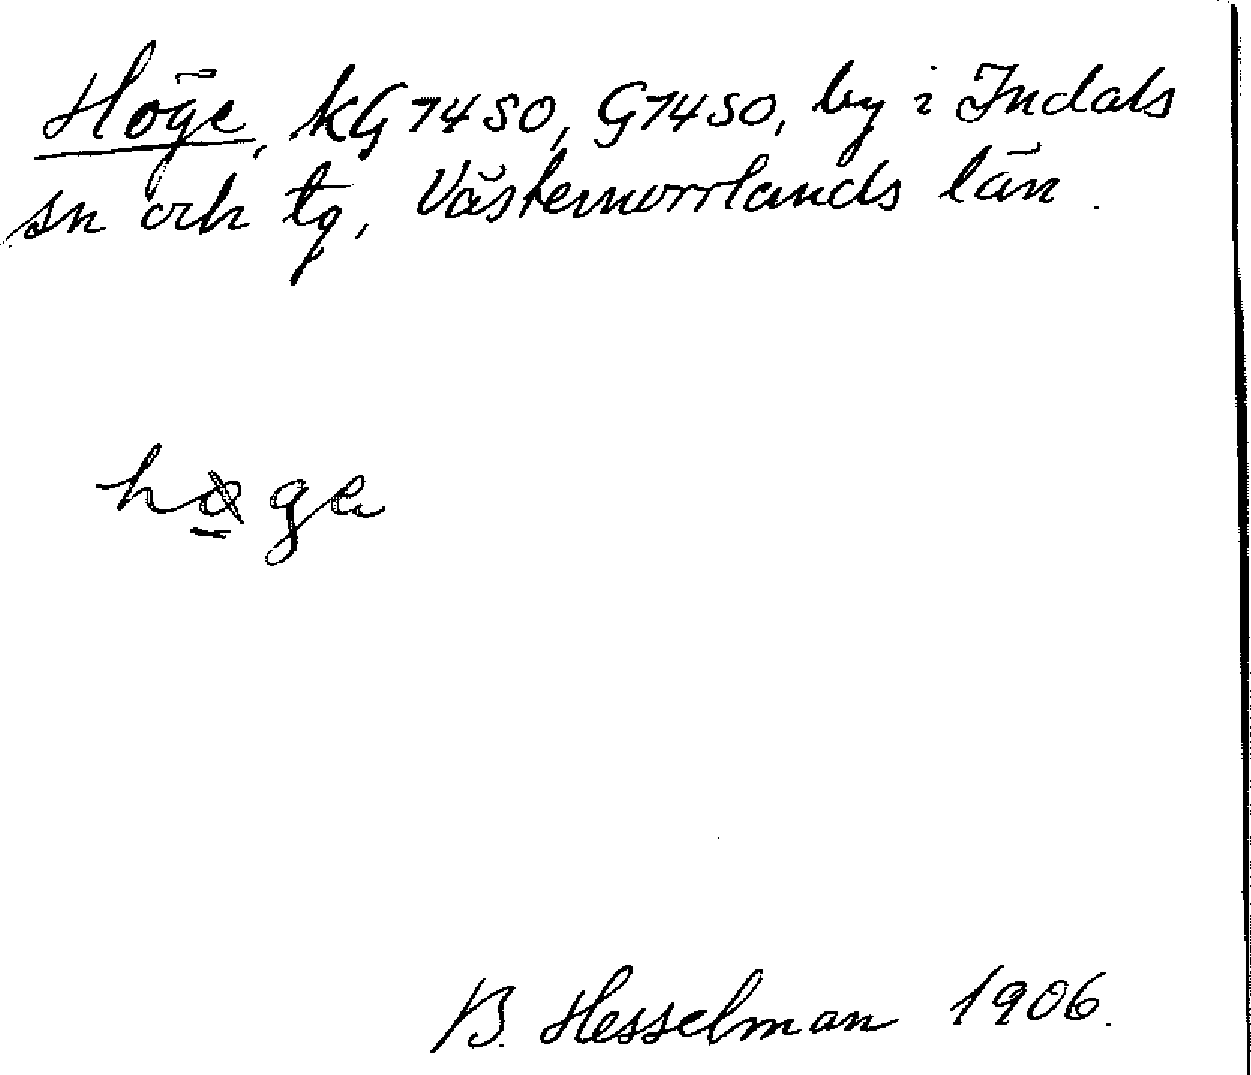 Höge, kG7450, G7450, by i Indals
sn och tg, Västernorrlands län.
høge
B. Hesselman 1906.